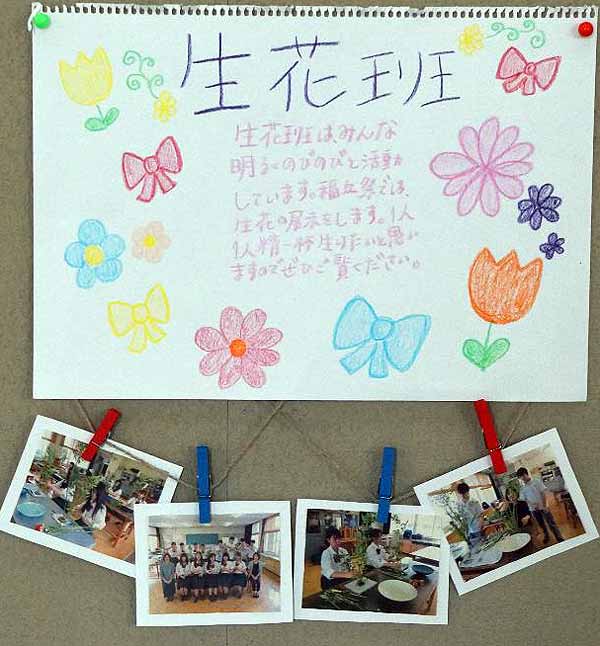 生花班
生花班は、みんな
明るくのびのびと活動
しています。福丘祭では、
生花の展示をします。1人
1人精一杯生けたいと思い
ますのでぜひご覧ください。